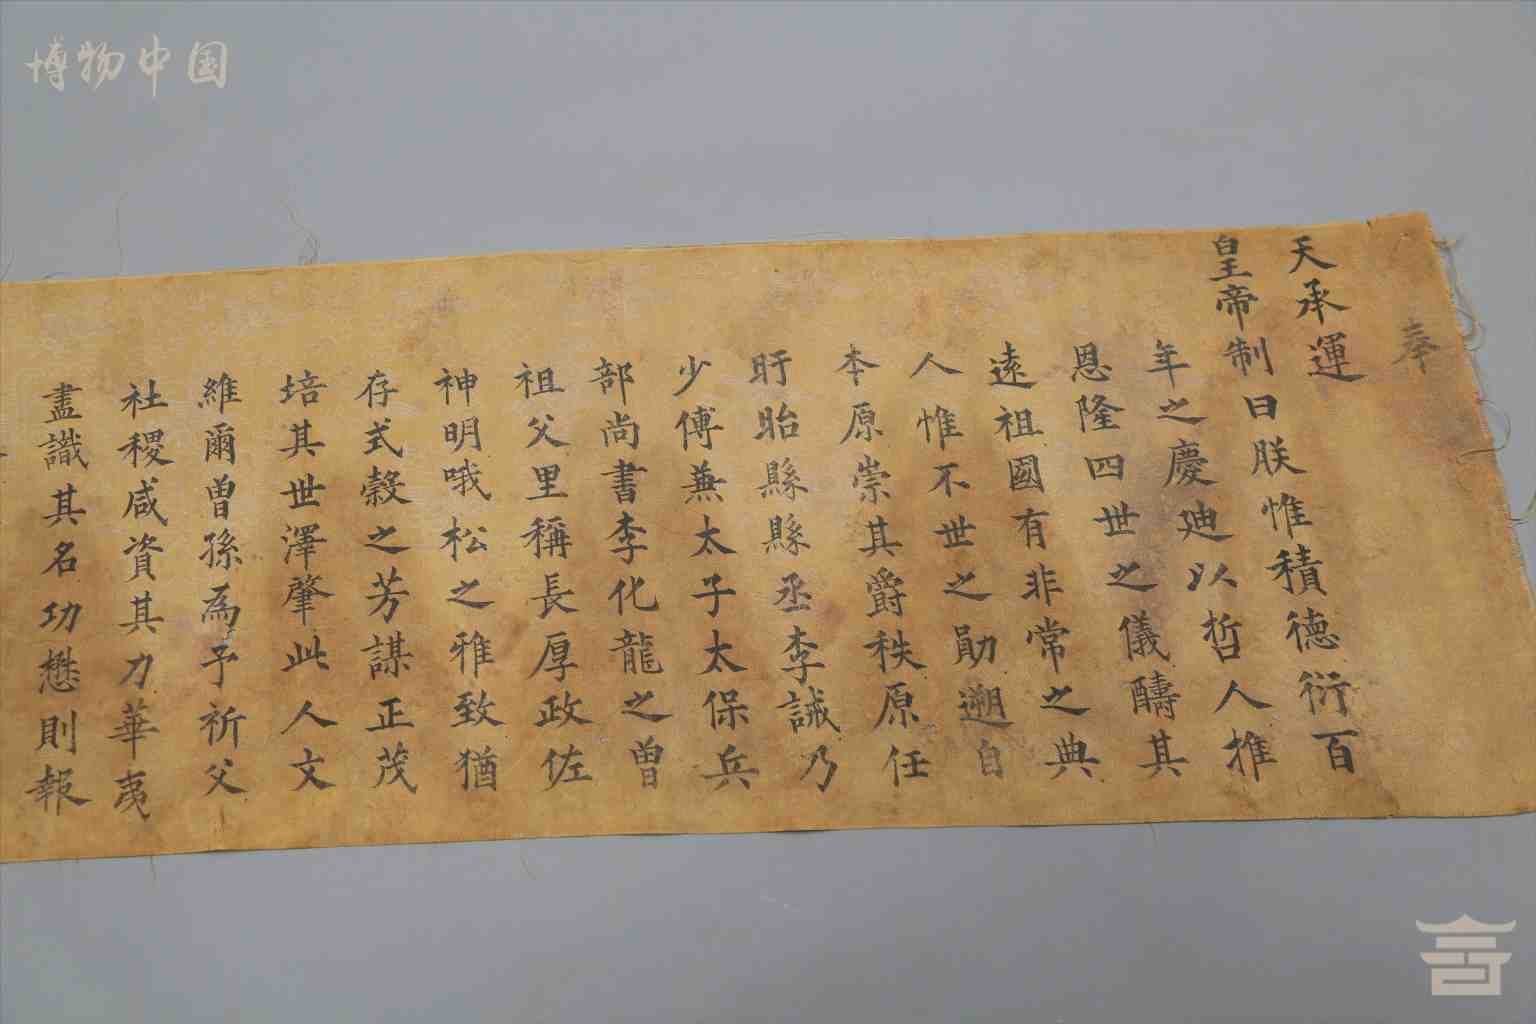 博物中国
奉
天承運
皇帝制曰朕惟積德衍百
年之慶廸以哲人推
恩隆四世之儀醻其
遠祖國有非常之典
人惟不世之勛遡自
本原崇其爵秩原任
盱眙縣縣丞李誠乃
少傅兼太子太保兵
部尚書李化龍之曾
祖父里稱長厚政佐
神明哦松之雅致猶
存式穀之芳謀正茂
培其世澤肇此人文
維爾曾孫為予祈父
社稷咸資其力華夷
盡識其名功懋則報